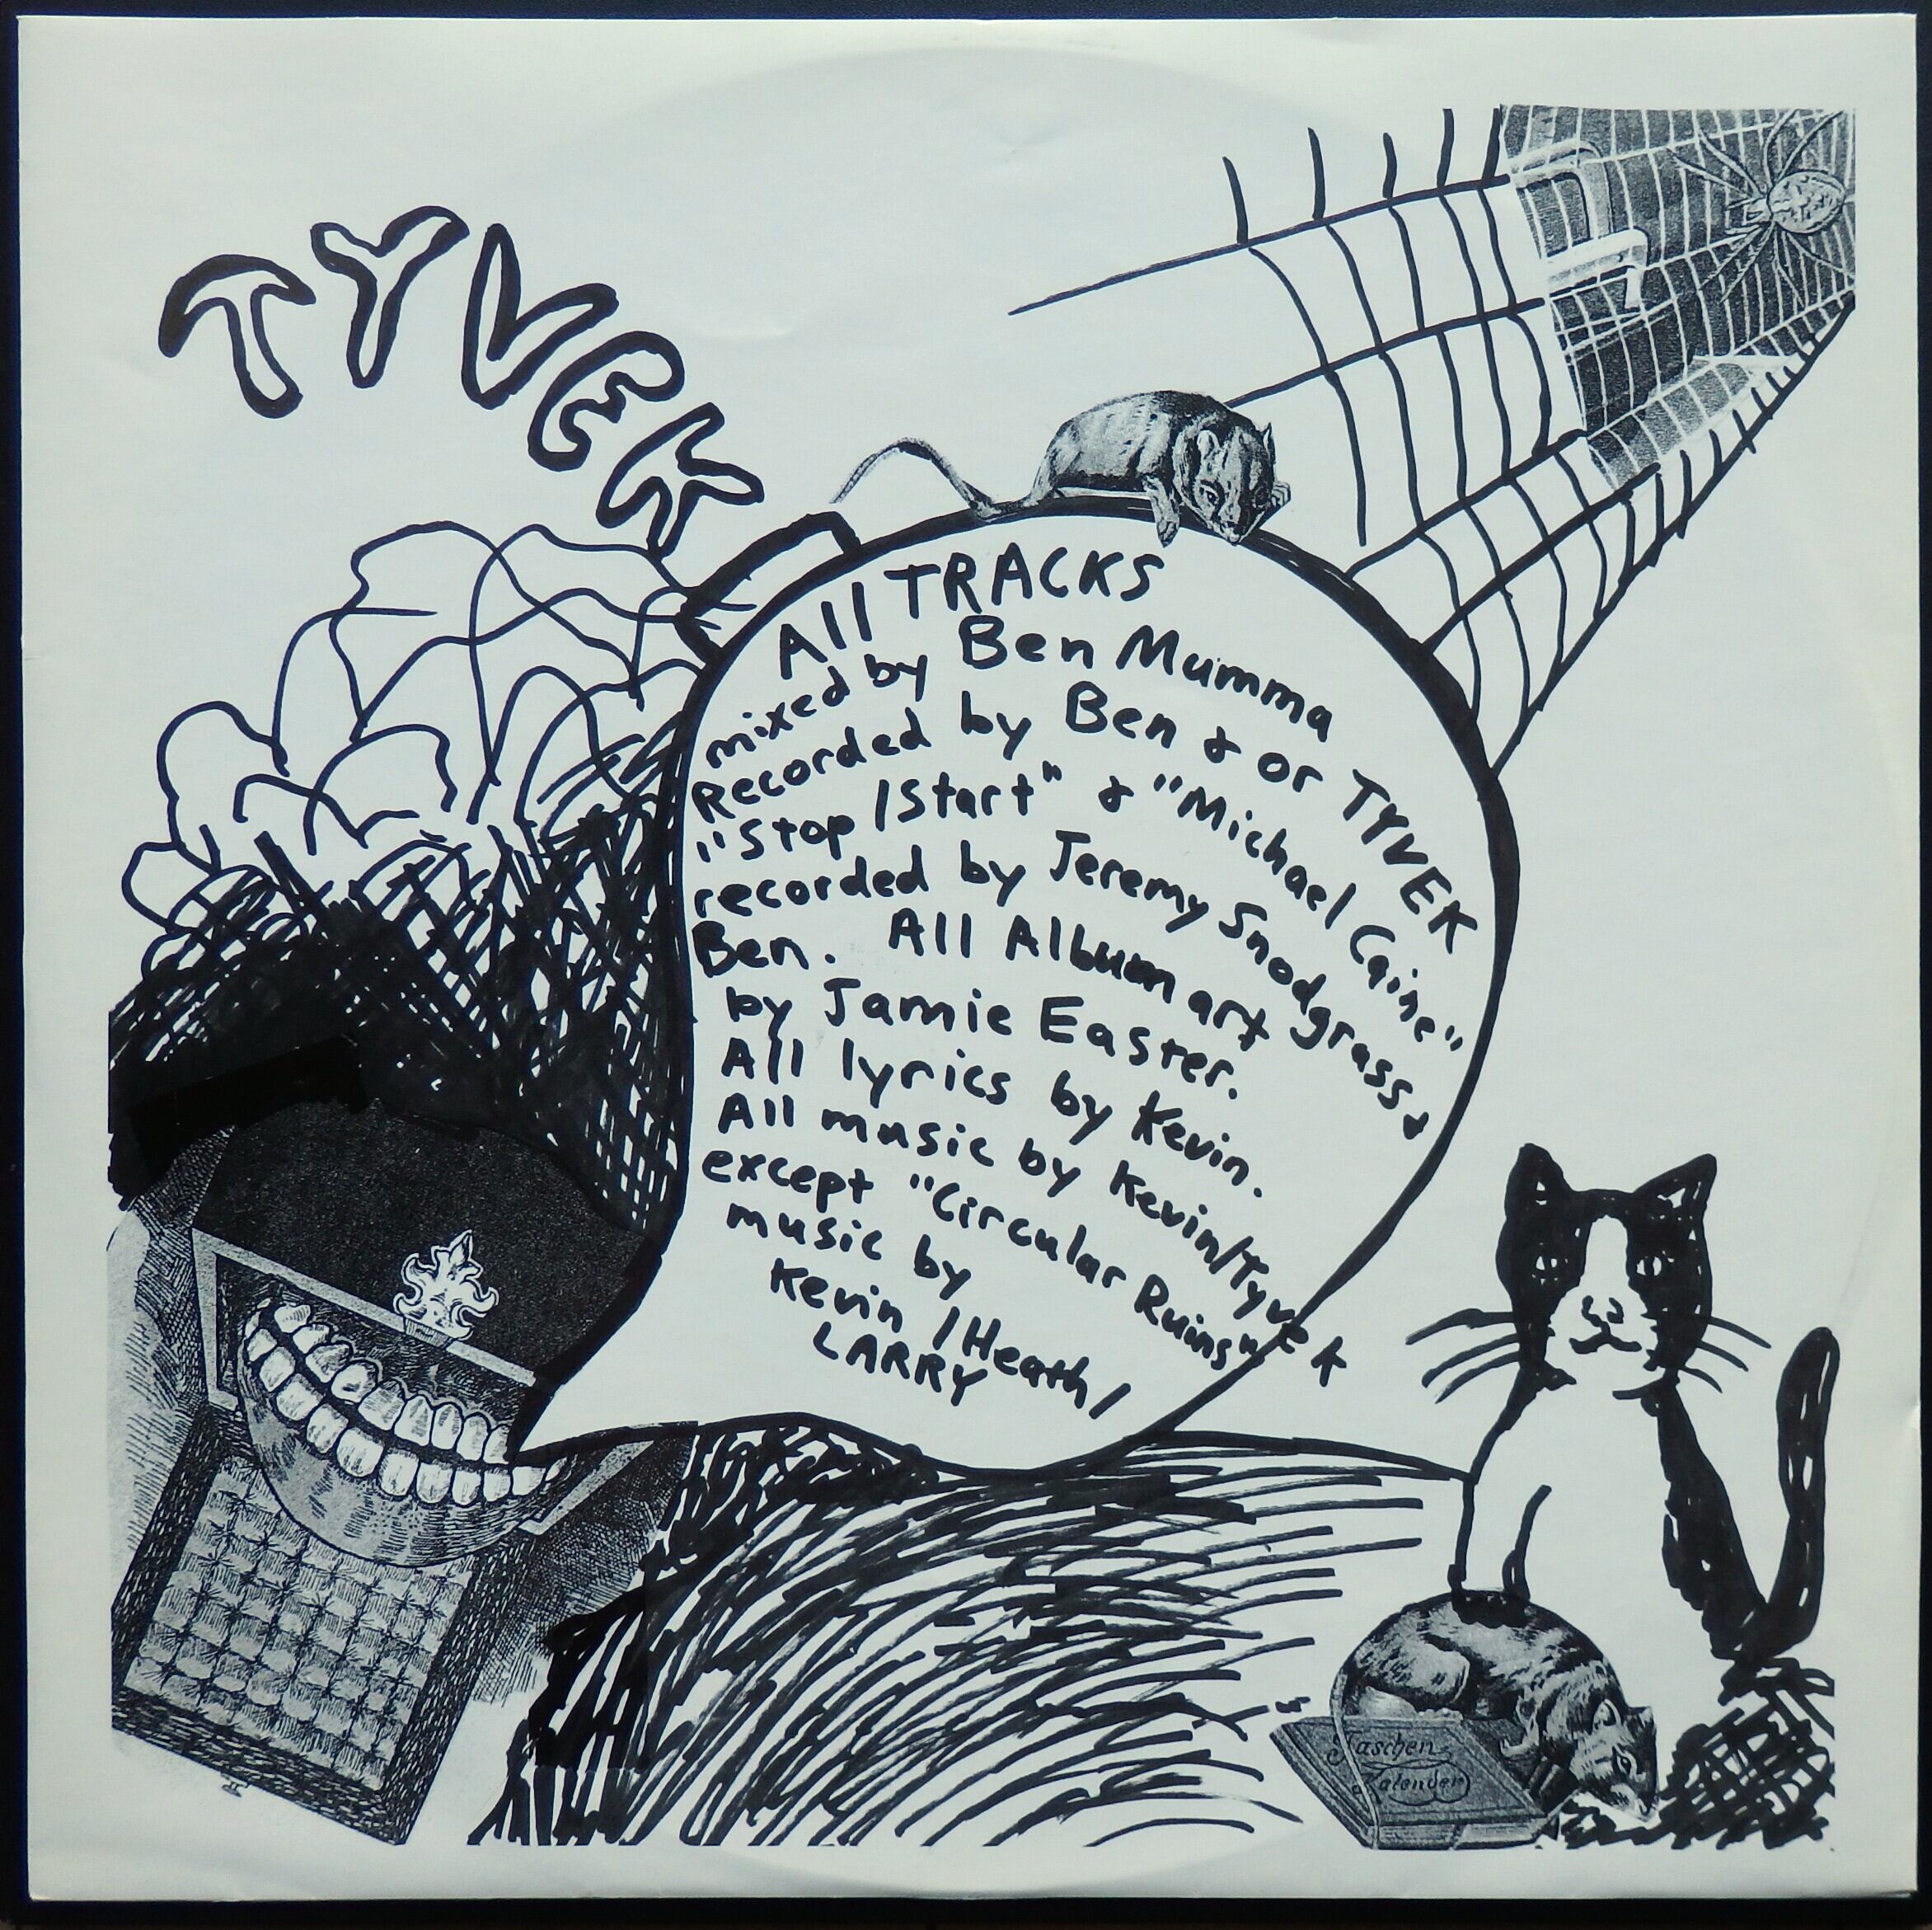 TYVEK
All TRACKS
mixed by Ben Mumma
Recorded by Ben & or TYVEK
"Stop / Start" & "Michael Caine"
recorded by Jeremy Snodgrass &
Ben. All Album art
by Jamie Easter.
All lyrics by Kevin.
All music by Kevin/Tyvek
except "Circular Ruins"
music by
Kevin / Heath /
LARRY
Taschen
Kalender